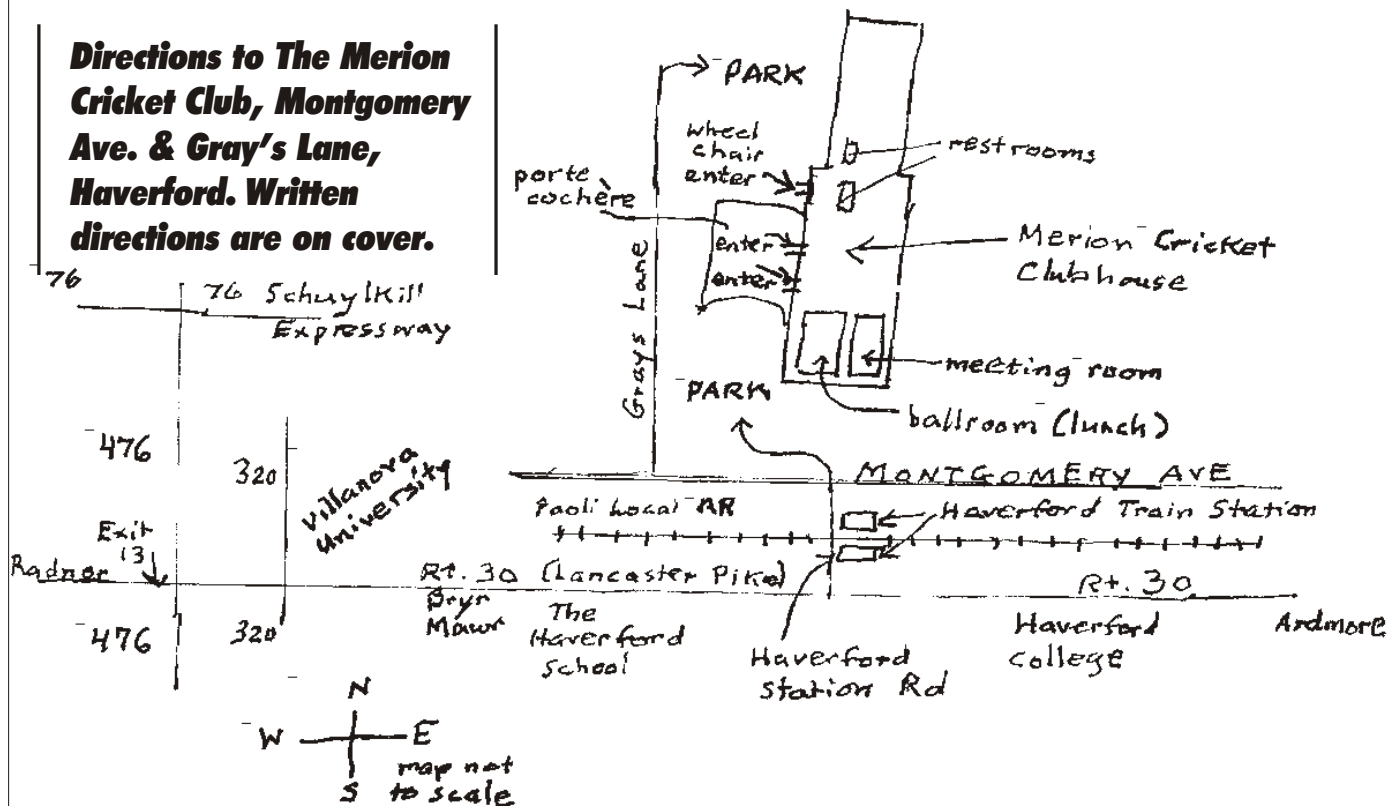 Directions to The Merion
Cricket Club, Montgomery
Ave. & Gray's Lane,
Haverford. Written
directions are on cover.
PARK
wheel
chair
enter
restrooms
porte
cochère
enter
enter
Merion Cricket
Clubhouse
Grays Lane
76
76 Schuylkill
Expressway
meeting room
PARK
ballroom (lunch)
476
320
Villanova
University
MONTGOMERY AVE
Paoli Local RR
Haverford Train Station
Exit
13
Radnor
Rt. 30 (Lancaster Pike)
Rt. 30
476
320
Bryn
Mawr
The
Haverford
School
Haverford
Station Rd
Haverford
College
Ardmore
N
W
E
S
map not
to scale